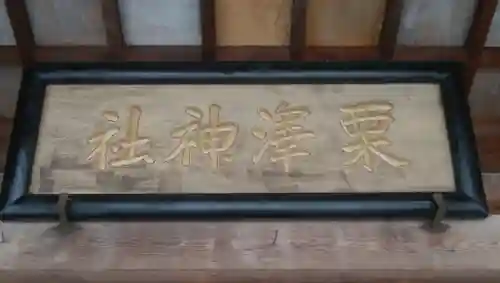 粟澤神社